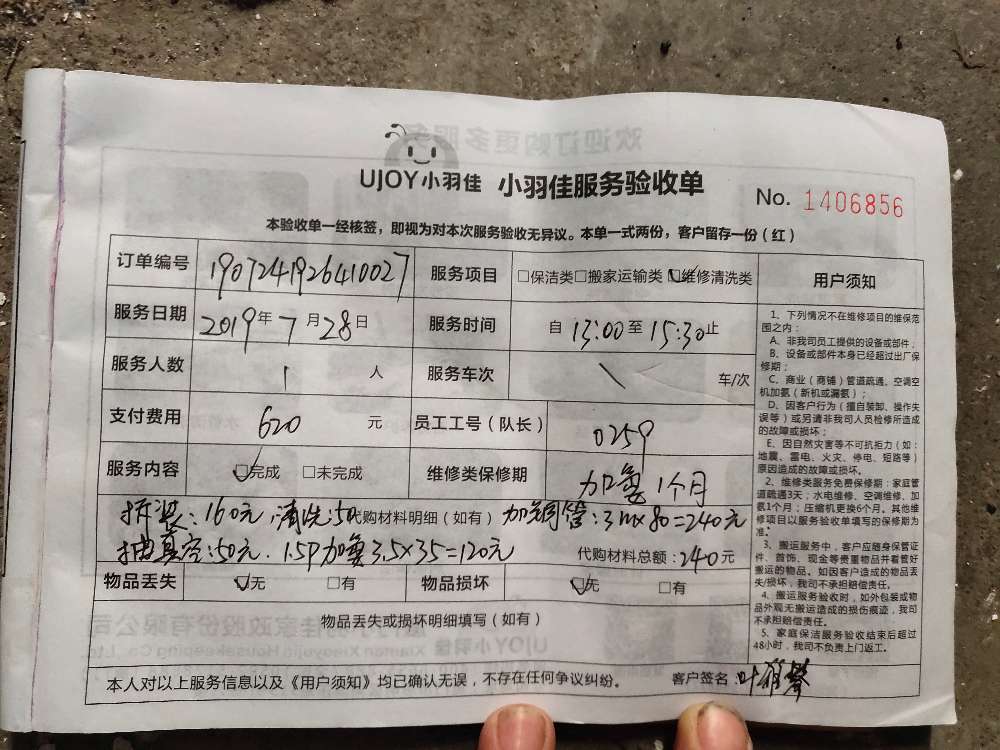 UJOY小羽佳 小羽佳服务验收单
No. 1406856
本验收单一经核签，即视为对本次服务验收无异议。本单一式两份，客户留存一份（红）
订单编号 190724192641002​7 服务项目 □保洁类□搬家运输类☑维修清洗类
服务日期 2019年7月28日 服务时间 自 13:00至15:30止
服务人数 1 人 服务车次 \ 车/次
支付费用 620 元 员工工号（队长） 0259
服务内容 ☑完成 □未完成 维修类保修期 加氟1个月
拆装:160元,清洗:50 代购材料明细（如有） 加铜管:3m×80=240元
抽真空:50元. 1.5P加氟3.5×35=120元 代购材料总额:240元
物品丢失 ☑无 □有 物品损坏 ☑无 □有
物品丢失或损坏明细填写（如有）
本人对以上服务信息以及《用户须知》均已确认无误，不存在任何争议纠纷。 客户签名:叶
用户须知
1、下列情况不在维修项目的维保范
围之内：
A、非我司员工提供的设备或部件；
B、设备或部件本身已经超过出厂保
修期；
C、商业（商铺）管道疏通、空调空
机加氨（新机或漏氨）；
D、因客户行为（擅自装卸、操作失
误等）或另请非我司人员检修所造成
的故障或损坏；
E、因自然灾害等不可抗拒力（如：
地震、雷电、火灾、停电、短路等）
原因造成的故障或损坏。
2、维修类服务免费保修期：家庭管
道疏通3天；水电维修、空调维修、加
氨1个月；压缩机更换6个月。其他维
修项目以服务验收单填写的保修期为
准。
3、搬运服务中，客户应随身保管证
件、首饰、现金等贵重物品并看管好
搬运的物品。如因客户造成的物品丢
失/损坏，我司不承担赔偿责任。
4、搬运服务验收时，如外包装或物
品外观无搬运造成的损伤痕迹，我司
不承担赔偿责任。
5、家庭保洁服务验收结束后超过
48小时，我司不负责上门返工。